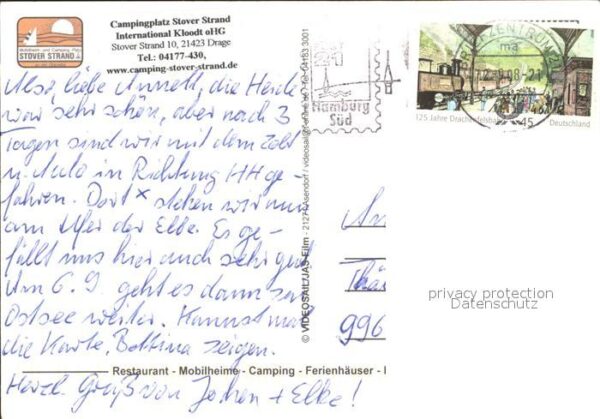 Mobilheim- und Camping-Platz
STOVER STRAND
Campingplatz Stover Strand
International Kloodt oHG
Stover Strand 10, 21423 Drage
Tel.: 04177-430,
www.camping-stover-strand.de
Also, liebe Annett, die Heide
war sehr schön, aber nach 3
Tagen sind wir mit dem Zelt
u. Auto in Richtung HH ge-
fahren. Dort x stehen wir nun
am Ufer der Elbe. Es ge-
fällt uns hier auch sehr gut
Um 6.9. geht es dann zur
Ostsee weiter. Kannst mal
die Karte Bettina zeigen.
Herzl. Grüße von Jochen + Elke!
Restaurant - Mobilheime - Camping - Ferienhäuser -
© VIDEOSAIL/JAS-Film - 21271 Asendorf / 04183 3001
21
Hamburg
Süd
BRIEFZENTRUM
08-21
125 Jahre Drachenfelsbahn
45
Deutschland
An
Thä
996
privacy protection
Datenschutz